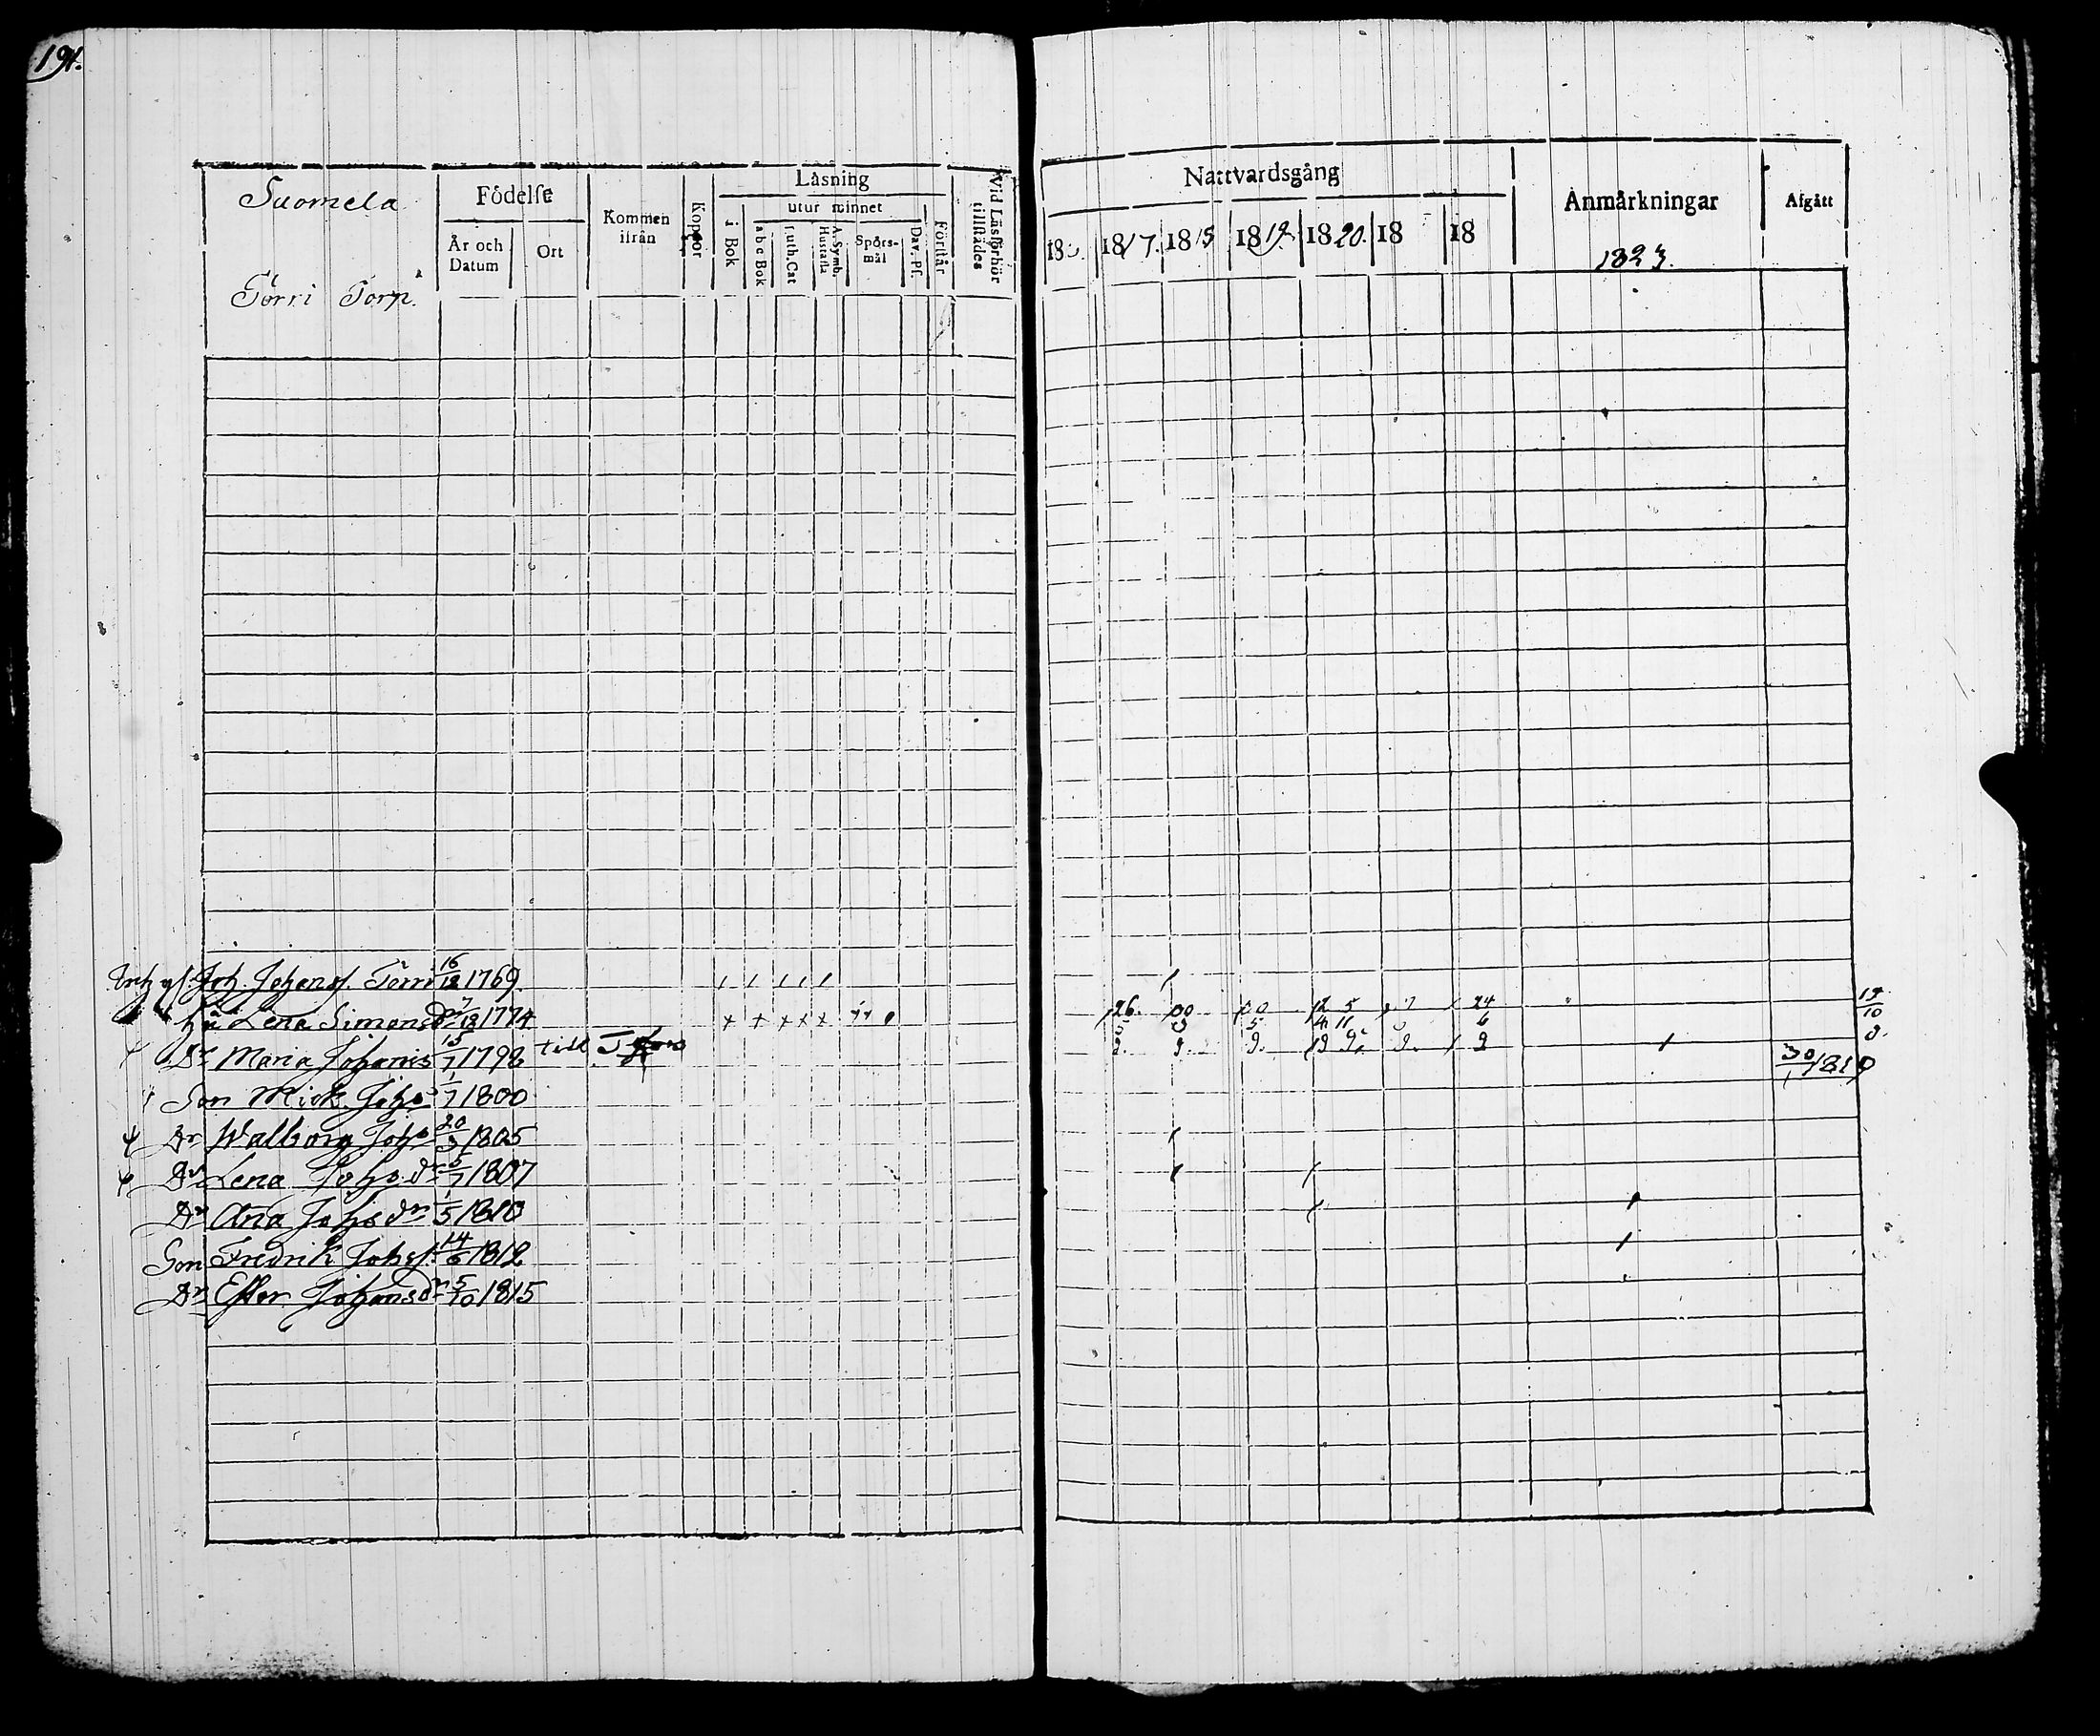 191.
Suomela
Törri Torp.
Födelse
År och Datum
Ort
Kommen ifrån
Koppor
Läsning
utur minnet
i Bok
a b c Bok
Luth. Cat
A. Symb. Hustafla
Spörsmål
Dav. Ps.
Förstår
Vid Läsförhör tillstädes
Nattvardsgång
18 1817. 1818 1819 1820. 18 18
Anmärkningar
1823.
Afgått
Joh. Johanss. Törri 16/12 1769.
Hu Lena Simonsdr 7/12 1774
Dr Maria Johans 15/7 1798 till
Son Mick Johs 1/7 1800
Dr Walborg Johs 20/3 1805
Dr Lena Johs dr 5/7 1807
Dr Aña Johs dr 1/5 1810
Son Fredrik Johs 14/6 1812
Dr Ester Johansdr 5/10 1815
26. 20 20 12 5 7 24 19/10
5 4 11 6
9. 9. 9. 9 9. 9. 9 9.
30/1 1819